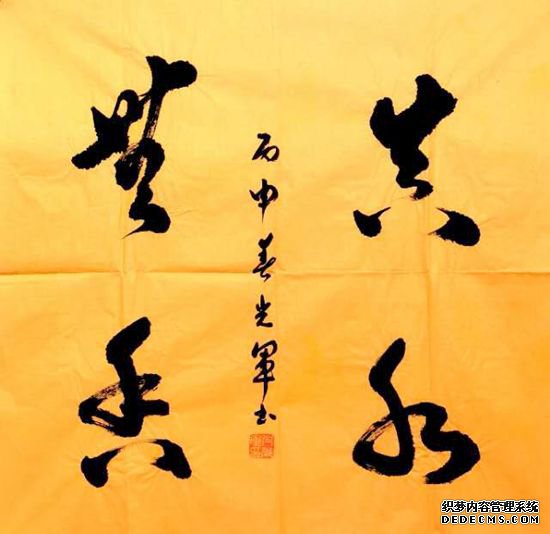 真水
無香
丙申春光军书
织梦内容管理系统
DEDECMS.COM